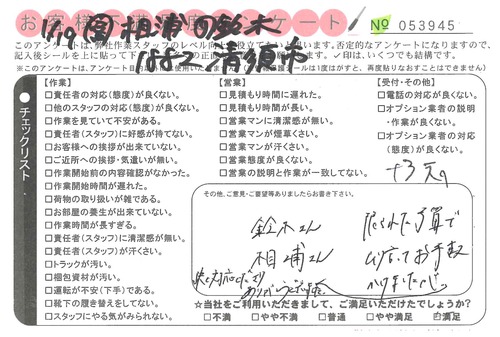 お客様不満度アンケート
№ 053945
1/19 ㊞ 相浦 鈴木
1882 清須市
このアンケートは、弊社作業スタッフのレベル向上に役立てたいと思います。否定的なアンケートになりますので、
記入後シールを上に貼って下
✓印は、いくつでも結構です。
チェックリスト
【作業】
□責任者の対応(態度)が良くない。
□他のスタッフの対応(態度)が良くない。
□作業を見ていて不安がある。
□責任者(スタッフ)に好感が持てない。
□お客様への挨拶が出来ていない。
□ご近所への挨拶・気遣いが無い。
□作業開始前の内容確認がなかった。
□作業開始時間が遅れた。
□荷物の取り扱いが雑である。
□お部屋の養生が出来ていない。
□作業時間が長すぎる。
□責任者(スタッフ)に清潔感が無い。
□責任者(スタッフ)が汗くさい。
□トラックが汚い。
□梱包資材が汚い。
□運転が不安(下手)である。
□靴下の履き替えをしてない。
□スタッフにやる気がみられない。
【営業】
□見積もり時間に遅れた。
□見積もり時間が長い。
□営業マンに清潔感が無い。
□営業マンが煙草くさい。
□営業マンが汗くさい。
□営業態度が良くない。
□営業の説明と作業が一致してない。
【受付・その他】
□電話の対応が良くない。
□オプション業者の説明
・作業が良くない。
□オプション業者の対応
(態度)が良くない。
その他、ご意見・ご要望等ありましたらお書き下さい。
鈴木さん
相浦さん
限られた予算で
お手数
かけました。
☆当社をご利用いただきまして、ご満足いただけたでしょうか？
□不満 □やや不満 □普通 □やや満足 □満足